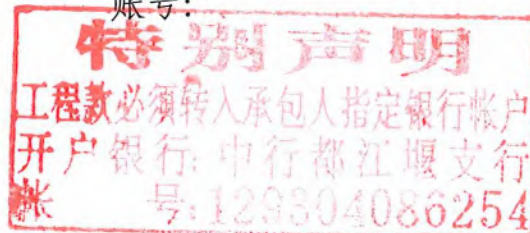 账号:
特别声明
工程款必须转入承包人指定银行帐户
开户银行:中行都江堰支行
帐号:129804086254